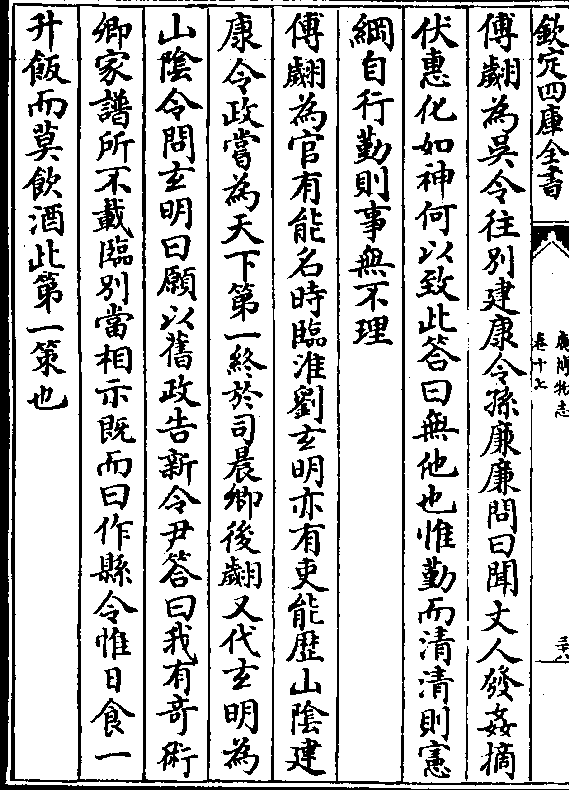 欽定四庫全書
廣博物志
卷十七
傅翽為吳令往別建康令孫廉廉問曰聞丈人發姦摘
伏惠化如神何以致此答曰無他也惟勤而清清則憲
綱自行勤則事無不理
傅翽為官有能名時臨淮劉玄明亦有吏能歴山陰建
康令政嘗為天下第一終於司晨卿後翽又代玄明為
山陰令問玄明曰願以舊政告新令尹答曰我有奇術
卿家譜所不載臨別當相示既而曰作縣令惟日食一
升飯而莫飲酒此第一策也